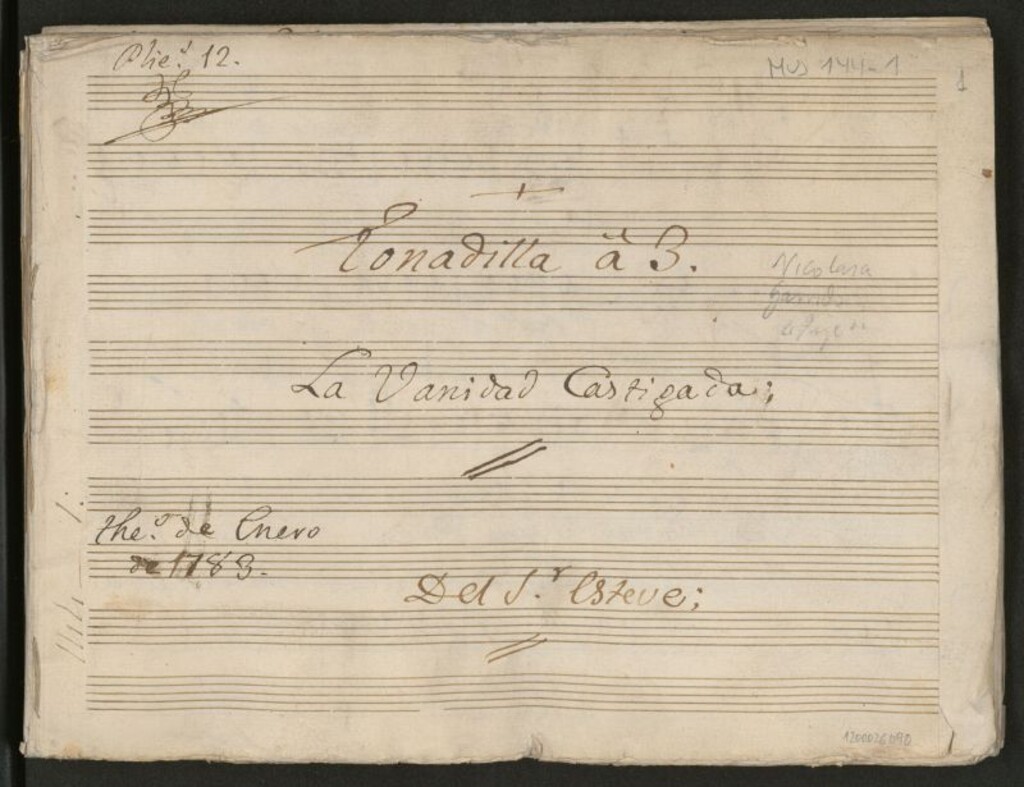 Plie.s 12.
MUS 144-1
1
Tonadilla à 3.
Nicolasa
Garrido
La Vanidad Castigada;
the.o de Enero
de 1783.
Del S.r Esteve;
1200026090